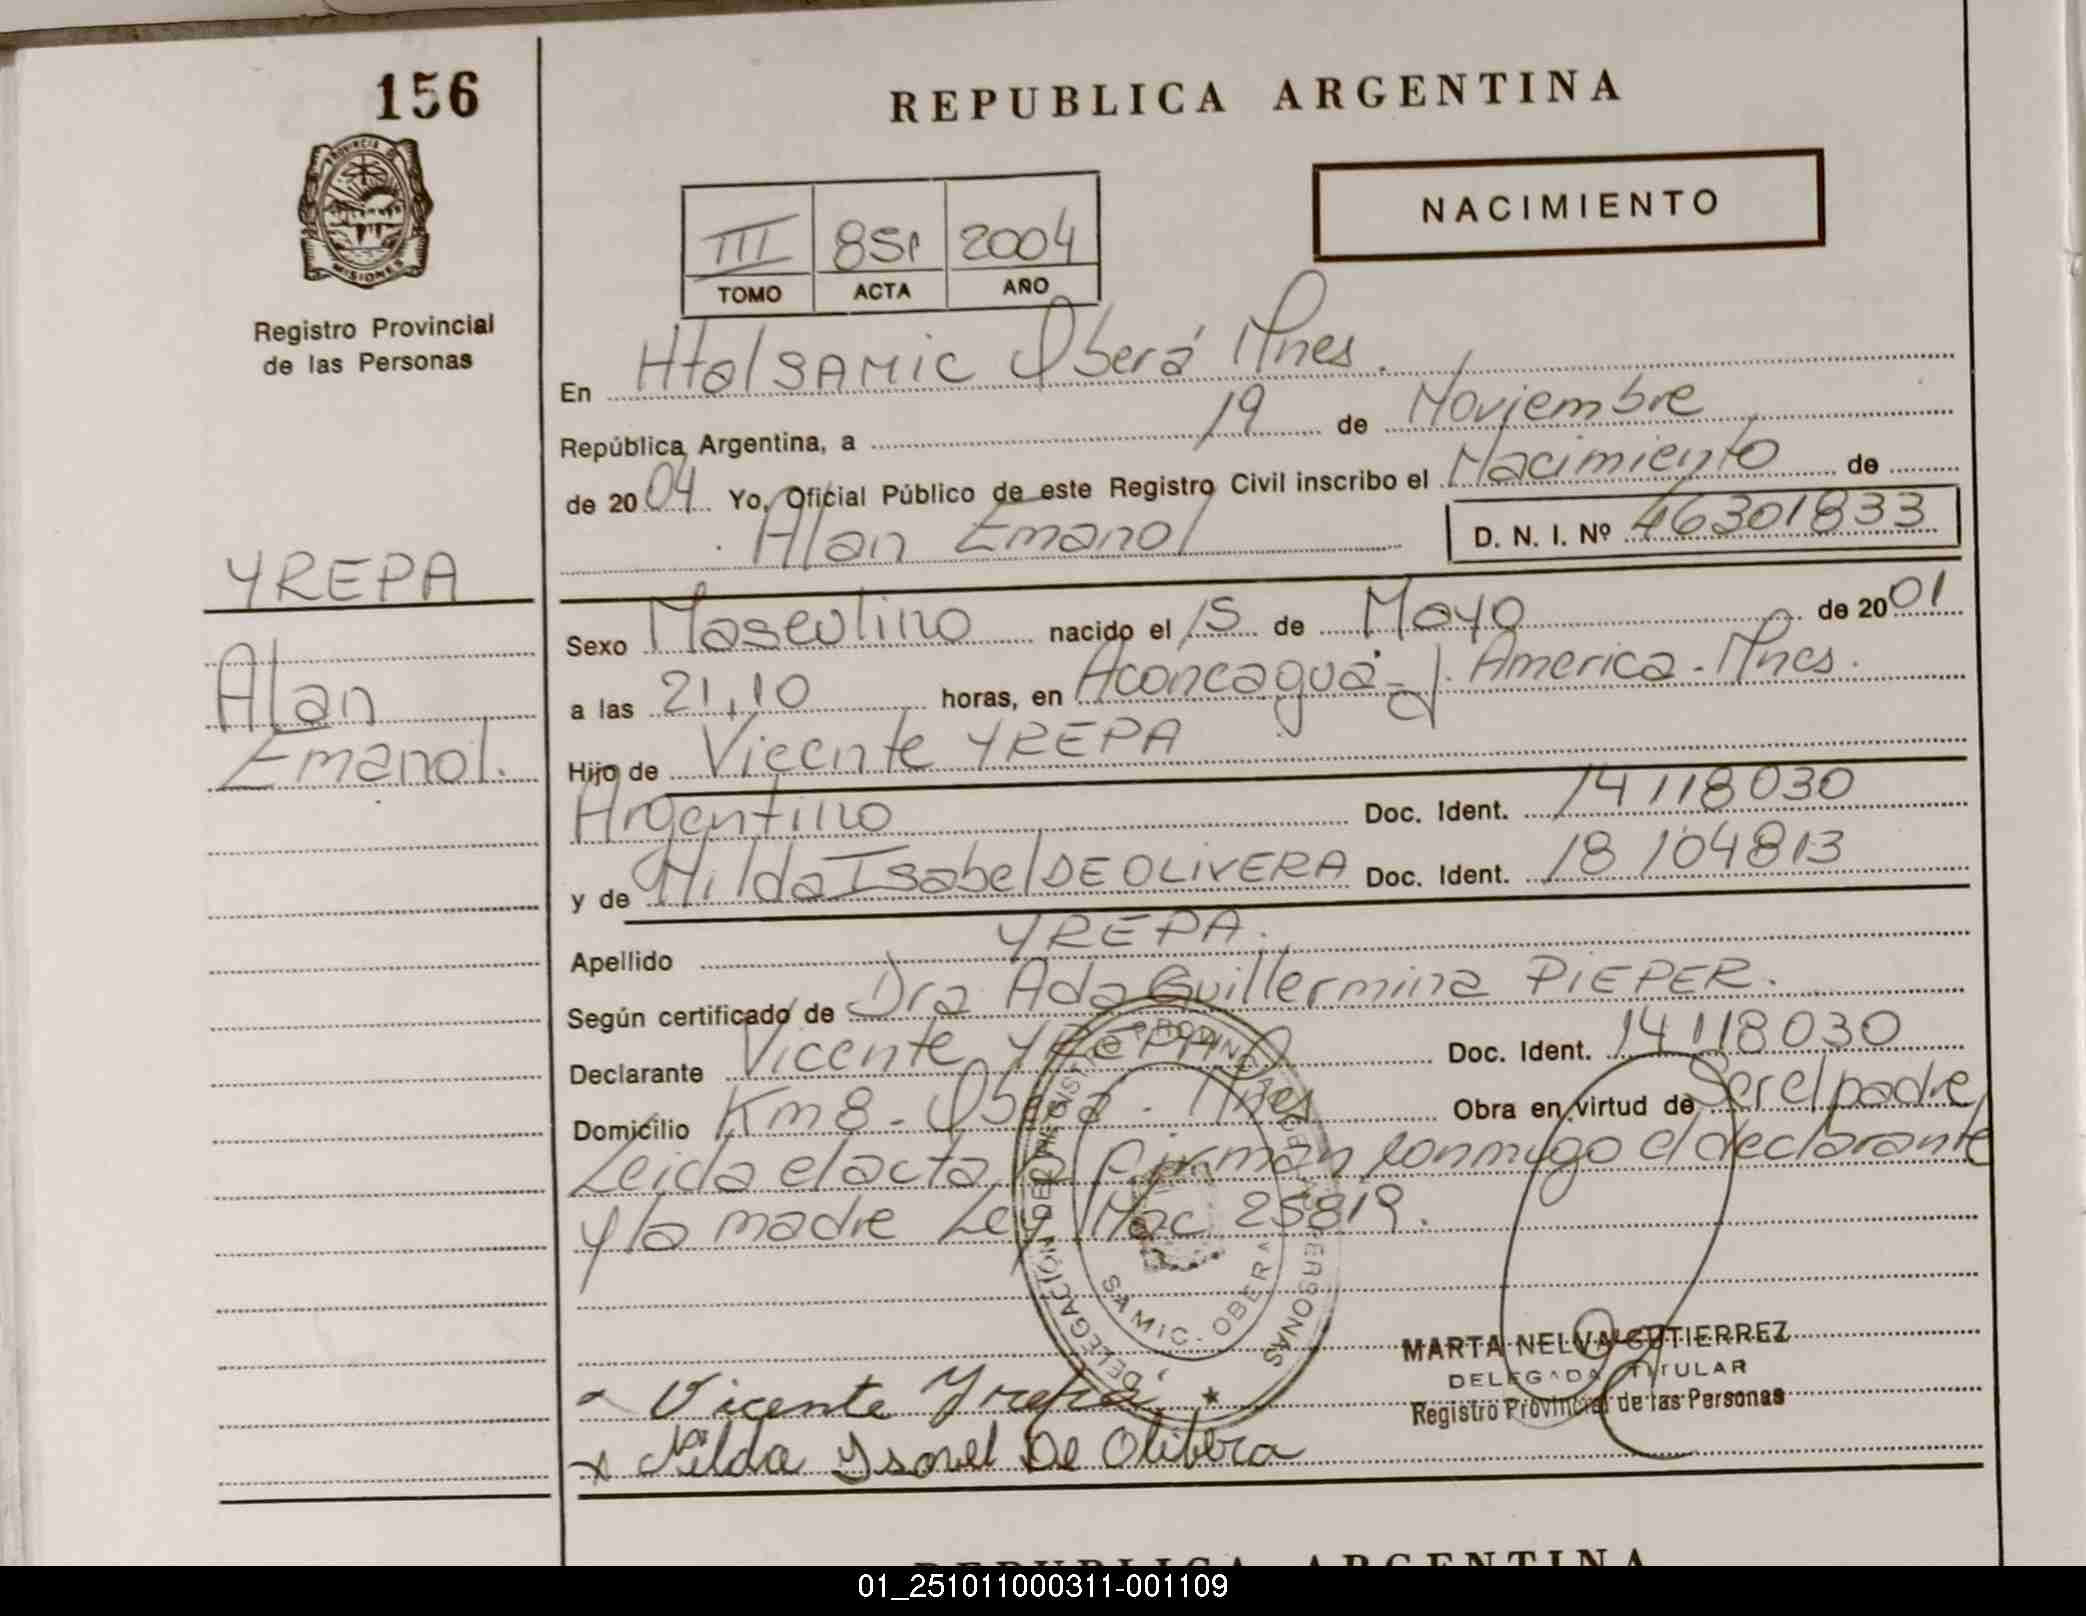 156
REPUBLICA ARGENTINA
PROVINCIA DE
MISIONES
NACIMIENTO
III 851 2004
TOMO ACTA AÑO
Registro Provincial
de las Personas
En Htal SAMIC Oberá Mnes.
República Argentina, a 19 de Noviembre
de 2004 Yo, Oficial Público de este Registro Civil inscribo el Nacimiento de
Alan Emanol D. N. I. Nº 46301833
YREPA
Alan
Emanol.
Sexo Masculino nacido el 15 de Mayo de 2001
a las 21,10 horas, en Aconcagua - J. America - Mnes.
Hijo de Vicente YREPA
Argentino Doc. Ident. 14118030
y de Hilda Isabel DE OLIVERA Doc. Ident. 18104813
Apellido YREPA.
Según certificado de Dra Ada Guillermina PIEPER.
Declarante Vicente YREPA Doc. Ident. 14118030
Domicilio Km 8 - Oberá - Mnes Obra en virtud de Ser el padre
Leida el acta, firman conmigo el declarante
y la madre Ley Nac. 25819.
DELEGACIÓN DEL REGISTRO PROVINCIAL DE LAS PERSONAS
SAMIC - OBERA
MARTA NELVA GUTIERREZ
DELEGADA TITULAR
Registro Provincial de las Personas
Vicente Yrepa
x Nilda Ysavel De Olibera
REPUBLICA ARGENTINA
01_251011000311-001109